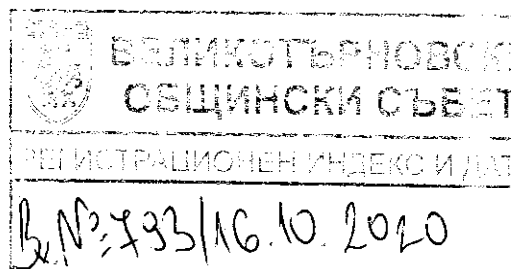 ВЕЛИКОТЪРНОВСК
ОБЩИНСКИ СЪВЕТ
РЕГИСТРАЦИОНЕН ИНДЕКС И ДАТ
Вх.№:793/16.10.2020